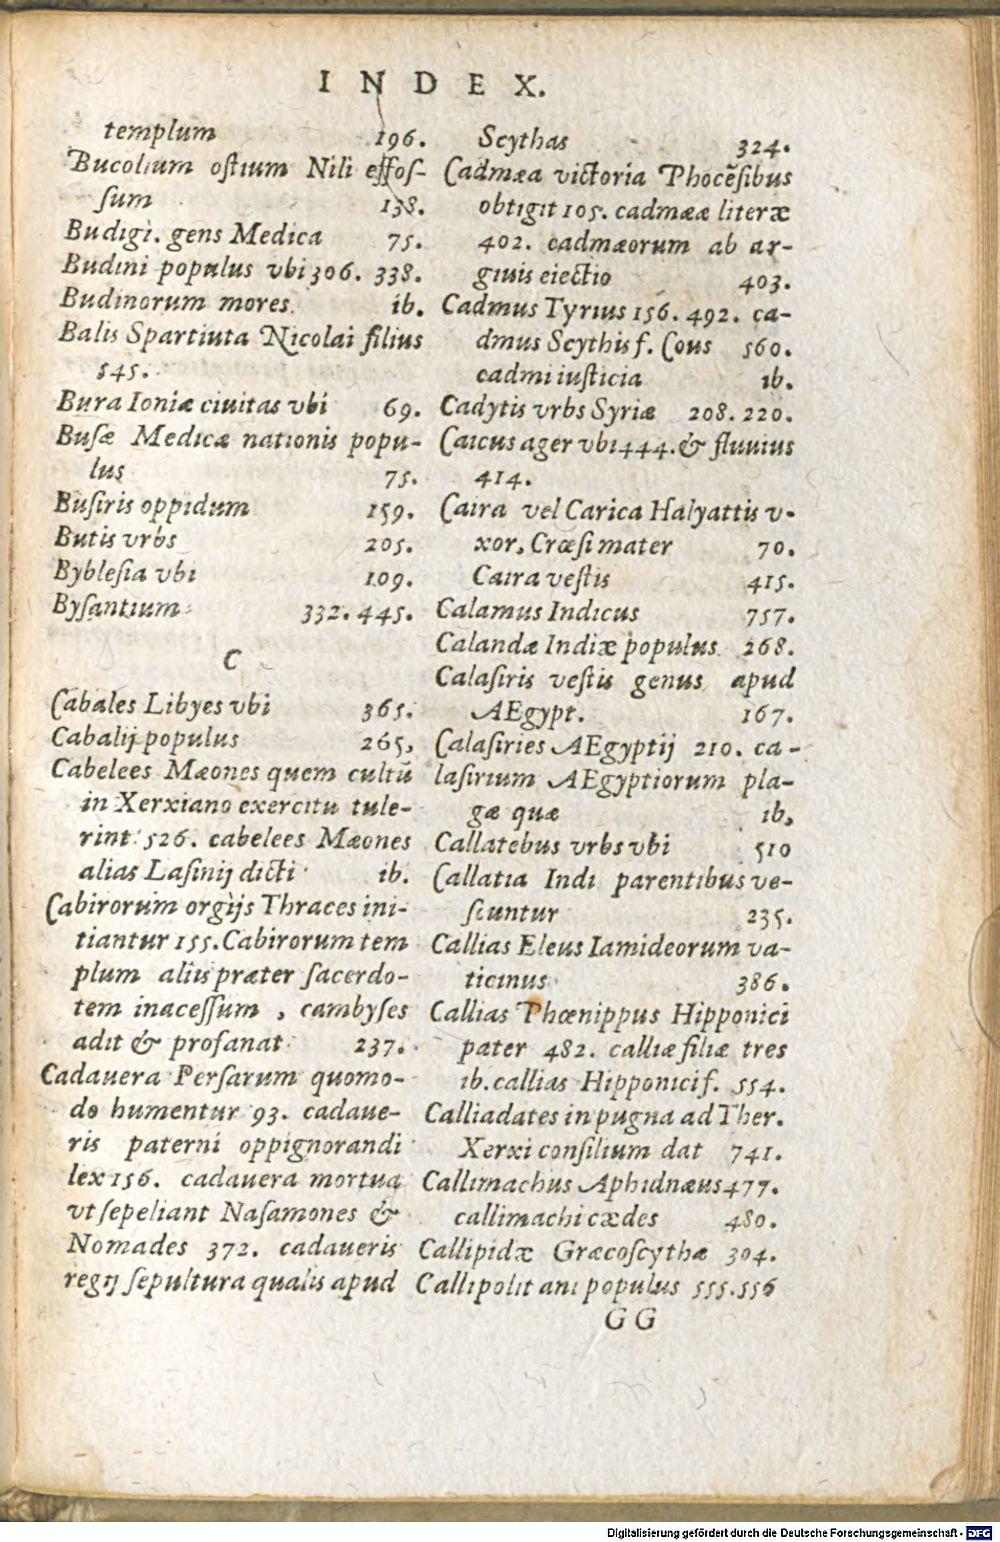 INDEX.
templum 196.
Bucolium ostium Nili effos-
sum 138.
Budigi. gens Medica 75.
Budini populus vbi 306. 338.
Budinorum mores. ib.
Balis Spartiata Nicolai filius
545.
Bura Ioniæ ciuitas vbi 69.
Busæ Medicæ nationis popu-
lus 75.
Busiris oppidum 159.
Butis vrbs 205.
Byblesia vbi 109.
Bysantium 332. 445.
C
Cabales Libyes vbi 365.
Cabalij populus 265,
Cabelees Mæones quem cultū
in Xerxiano exercitu tule-
rint 526. cabelees Mæones
alias Lasinij dicti ib.
Cabirorum orgijs Thraces ini-
tiantur 155. Cabirorum tem
plum alijs præter sacerdo-
tem inacessum, cambyses
adit & profanat 237.
Cadauera Persarum quomo-
do humentur 93. cadaue-
ris paterni oppignorandi
lex 156. cadauera mortua
vt sepeliant Nasamones &
Nomades 372. cadaueris
regij sepultura qualis apud
Scythas 324.
Cadmæa victoria Phocēsibus
obtigit 105. cadmææ literæ
402. cadmæorum ab ar-
giuis eiectio 403.
Cadmus Tyrius 156. 492. ca-
dmus Scythis f. Cous 560.
cadmi iusticia ib.
Cadytis vrbs Syriæ 208. 220.
Caicus ager vbi 444. & fluuius
414.
Caira vel Carica Halyattis v-
xor, Crœsi mater 70.
Caira vestis 415.
Calamus Indicus 757.
Calandæ Indiæ populus 268.
Calasiris vestis genus apud
AEgypt. 167.
Calasiries AEgyptij 210. ca-
lasirium AEgyptiorum pla-
gæ quæ ib,
Callatebus vrbs vbi 510
Callatia Indi parentibus ve-
scuntur 235.
Callias Eleus Iamideorum va-
ticinus 386.
Callias Phœnippus Hipponici
pater 482. calliæ filiæ tres
ib. callias Hipponici f. 554.
Calliadates in pugna ad Ther.
Xerxi consilium dat 741.
Callimachus Aphidnæus 477.
callimachi cædes 480.
Callipidæ Græcoscythæ 304.
Callipolitani populus 555. 556
GG
Digitalisierung gefördert durch die Deutsche Forschungsgemeinschaft - DFG